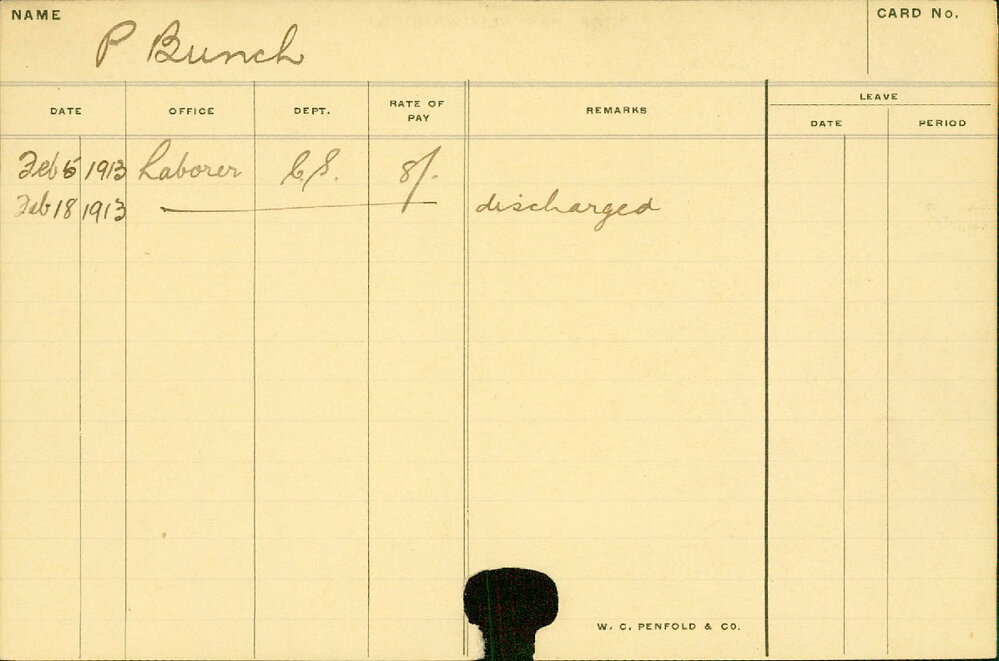 NAME
P Bunch
CARD No.
DATE OFFICE DEPT. RATE OF PAY REMARKS LEAVE
DATE PERIOD
Feb 5 1913 Laborer C.S. 8/.
Feb 18 1913 discharged
W. C. PENFOLD & CO.